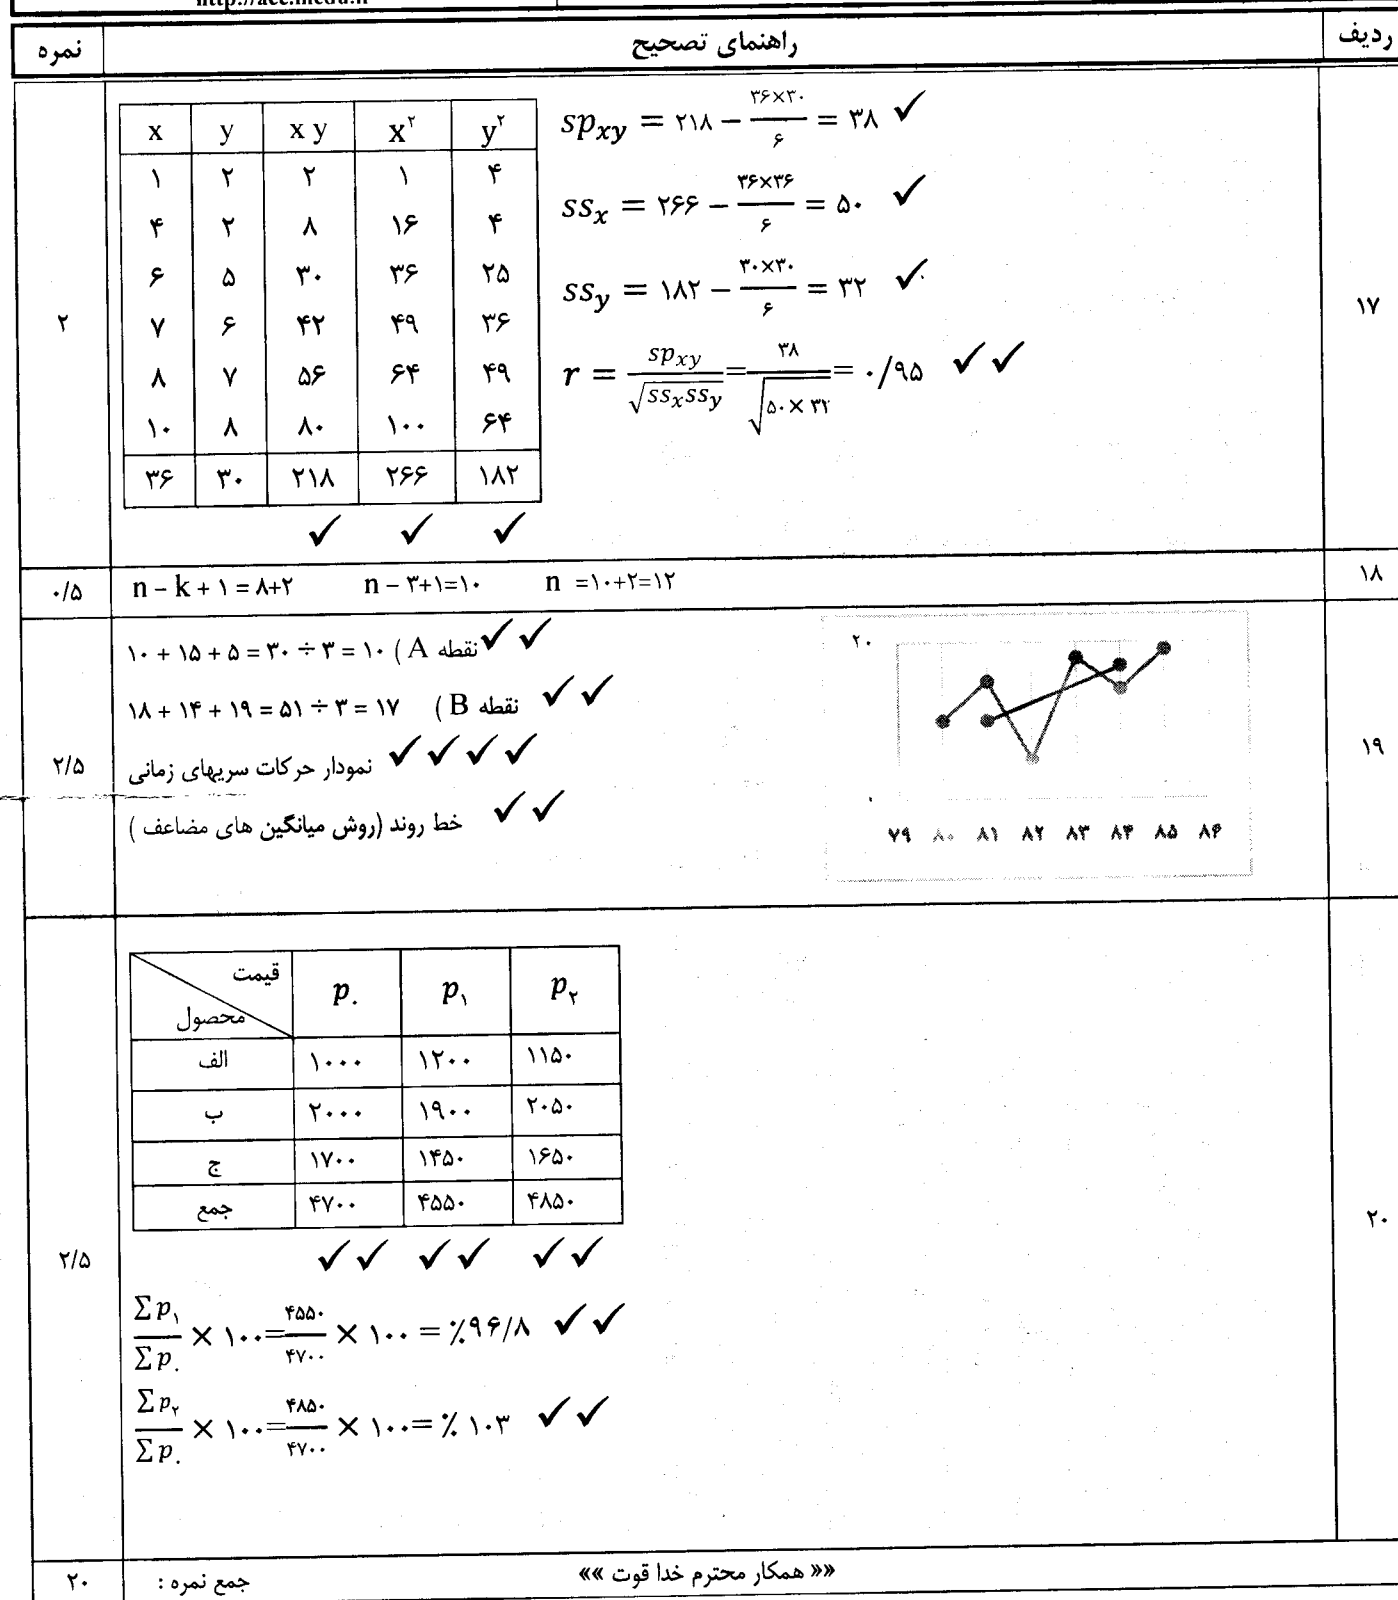 ردیف راهنمای تصحیح نمره
۱۷
x y x y x۲ y۲
۱ ۲ ۲ ۱ ۴
۴ ۲ ۸ ۱۶ ۴
۶ ۵ ۳۰ ۳۶ ۲۵
۷ ۶ ۴۲ ۴۹ ۳۶
۸ ۷ ۵۶ ۶۴ ۴۹
۱۰ ۸ ۸۰ ۱۰۰ ۶۴
۳۶ ۳۰ ۲۱۸ ۲۶۶ ۱۸۲
✓ ✓ ✓
spxy = ۲۱۸ − ۳۶×۳۰/۶ = ۳۸ ✓
ssx = ۲۶۶ − ۳۶×۳۶/۶ = ۵۰ ✓
ssy = ۱۸۲ − ۳۰×۳۰/۶ = ۳۲ ✓
r = spxy/√ssxssy = ۳۸/√۵۰×۳۲ = ۰/۹۵ ✓✓
۲
۱۸
n – k + ۱ = ۸+۲ n – ۳+۱=۱۰ n =۱۰+۲=۱۲
۰/۵
۱۹
۱۰ + ۱۵ + ۵ = ۳۰ ÷ ۳ = ۱۰ ( A نقطه ✓✓
۱۸ + ۱۴ + ۱۹ = ۵۱ ÷ ۳ = ۱۷ ( B نقطه ✓✓
نمودار حرکات سریهای زمانی ✓✓✓✓
خط روند (روش میانگین های مضاعف ) ✓✓
۲۰
۰
۷۹ ۸۰ ۸۱ ۸۲ ۸۳ ۸۴ ۸۵ ۸۶
۲/۵
۲۰
قیمت
محصول
p۰ p۱ p۲
الف ۱۰۰۰ ۱۲۰۰ ۱۱۵۰
ب ۲۰۰۰ ۱۹۰۰ ۲۰۵۰
ج ۱۷۰۰ ۱۴۵۰ ۱۶۵۰
جمع ۴۷۰۰ ۴۵۵۰ ۴۸۵۰
✓✓ ✓✓ ✓✓
∑p۱/∑p۰ × ۱۰۰=۴۵۵۰/۴۷۰۰ × ۱۰۰ = ٪۹۶/۸ ✓✓
∑p۲/∑p۰ × ۱۰۰=۴۸۵۰/۴۷۰۰ × ۱۰۰= ٪ ۱۰۳ ✓✓
۲/۵
«« همکار محترم خدا قوت »»
جمع نمره : ۲۰